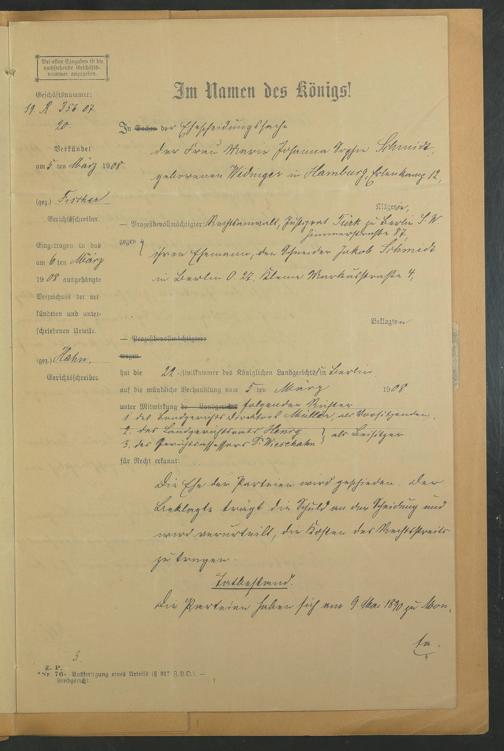 Bei allen Eingaben ist die
nachstehende Geschäfts-
nummer anzugeben.
Geschäftsnummer:
19. R. 356. 07.
20
Verkündet
am 5ten März 1908.
(gez.) Fischer
Gerichtsschreiber.
Eingetragen in das
am 6ten März
1908 ausgehängte
Verzeichnis der ver-
kündeten und unter-
schriebenen Urteile.
(gez.) Hahn,
Gerichtsschreiber.
Im Namen des Königs!
In Sachen der Ehescheidungssache
der Frau Marie Johanna Sophie Schmidt,
geborenen Wedinger in Hamburg, Erlenkamp 12,
Klägerin,
— Prozeßbevollmächtigter: Rechtsanwalt, Justizrat Türk zu Berlin S.W
Zimmerstraße 87,
gegen
ihren Ehemann, den Schneider Jakob Schmidt
in Berlin O. 27. Kleine Markusstraße 4,
Beklagten
— Prozeßbevollmächtigter
wegen
hat die 22. Zivilkammer des Königlichen Landgerichts I in Berlin
auf die mündliche Verhandlung vom 5ten März 1908
unter Mitwirkung der Landgericht folgender Richter
1. des Landgerichtsdirektors Müller, als Vorsitzenden,
2. des Landgerichtsrats Hennig
3. des Gerichtsassessors Dr. Wieschahn } als Beisitzer
für Recht erkannt:
Die Ehe der Parteien wird geschieden. Der
Beklagte trägt die Schuld an der Scheidung und
wird verurteilt, die Kosten des Rechtsstreits
zu tragen.
Tatbestand.
Die Parteien haben sich am 9. Mai 1890 zu Mon-
Z. P.
Nr. 76. Ausfertigung eines Urteils (§ 317 Z.P.O.). —
Landgericht